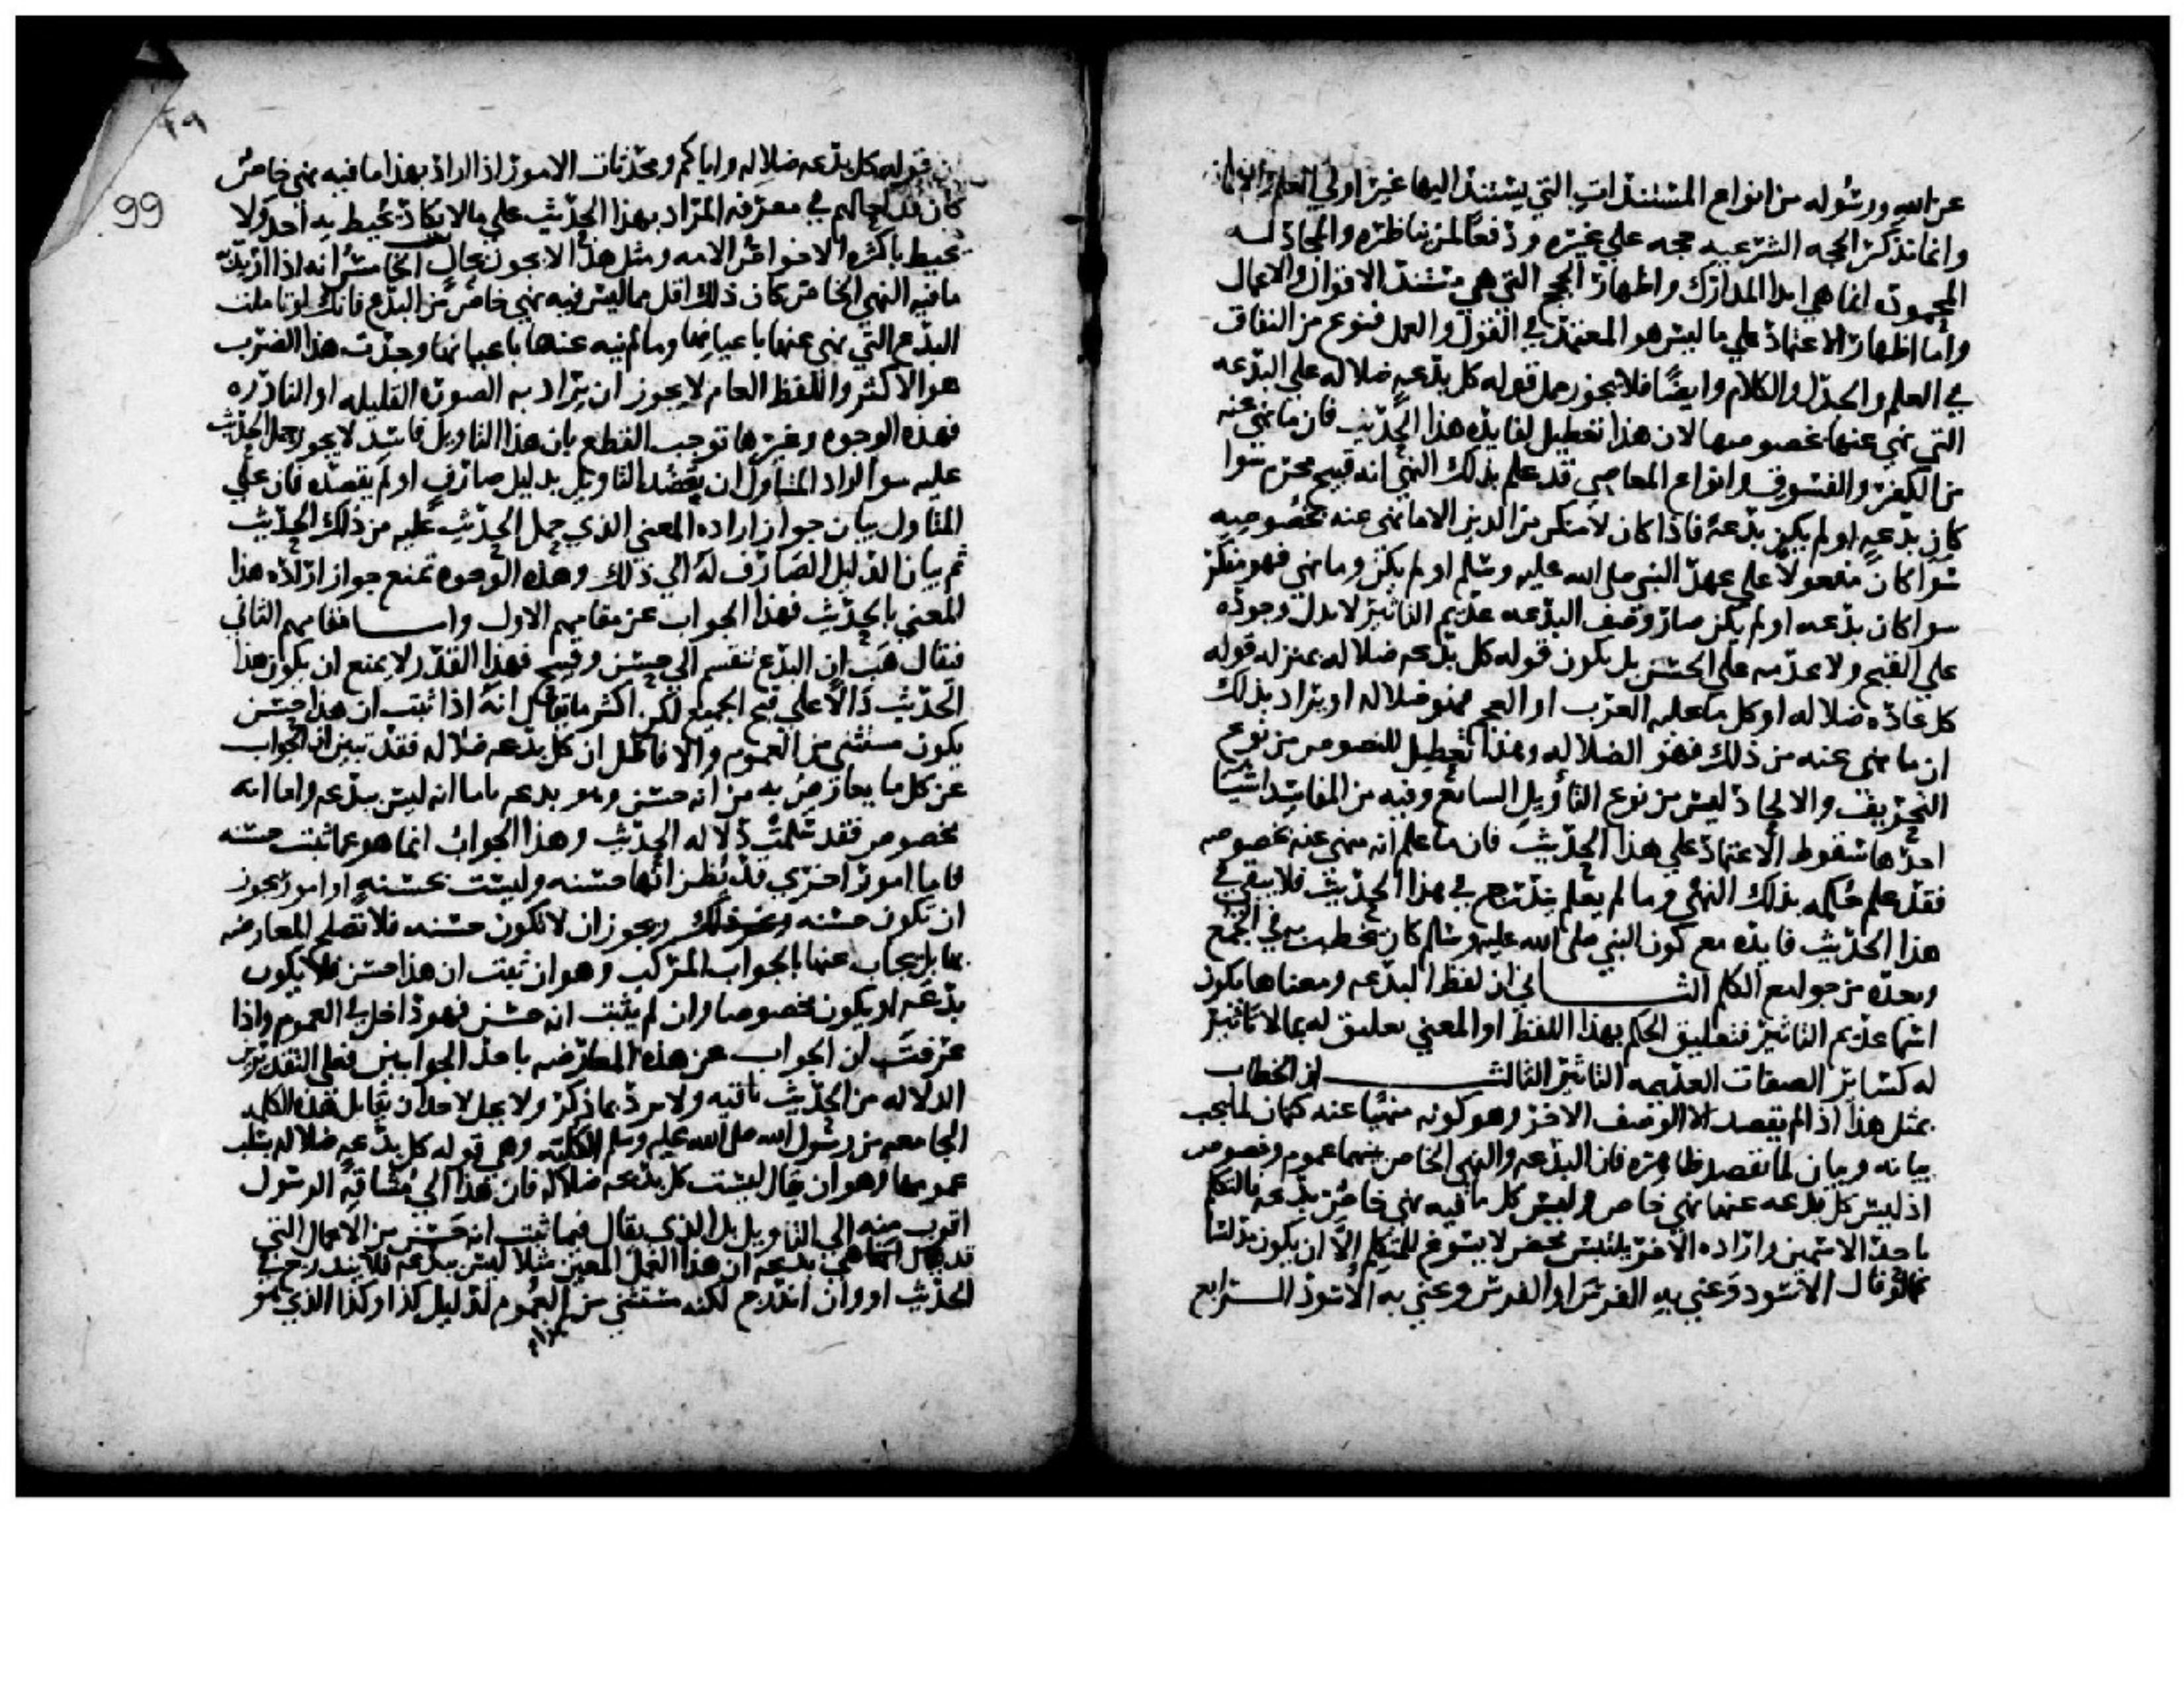 عن الله ورسوله من انواع المستندات التي يستند اليها غير اولي العلم والايمان
وانما تذكر الحجه الشرعيه حجه علي غيره ودفعا لمن يناظره والمجادله
المحموده انما هي ابدا المدارك واظهار الحجج التي هي مستند الاقوال والاعمال
واما اظهار الاعتماد علي ما ليس هو المعتمد في القول والعمل فنوع من النفاق
في العلم والجدل والكلام وايضا فلا يجوز حمل قوله كل بدعه ضلاله علي البدعه
التي نهي عنها بخصوصها لان هذا تعطيل لفايده هذا الحديث فان ما نهي عنه
من الكفر والفسوق وانواع المعاصي قد علم بذلك النهي انه قبيح محرم سوا
كان بدعه او لم يكن بدعة فاذا كان لا منكر من الدين الا ما نهي عنه بخصوصه
سوا كان مفعولا علي عهد النبي صلي الله عليه وسلم او لم يكن وما نهي فهو منكر
سوا كان بدعه او لم يكن صار وصف البدعه عديم التاثير لا يدل وجوده
علي القبح ولا عدمه علي الحسن بل يكون قوله كل بدعه ضلاله بمنزله قوله
كل عاده ضلاله او كل ما عليه العرب او العجم فهو ضلاله او يراد بذلك
ان ما نهي عنه من ذلك فهو الضلاله وهذا تعطيل للنصوص من نوع
التحريف والالحاد ليس من نوع التأويل السائع وفيه من المفاسد اشيا
احدها سقوط الاعتماد علي هذا الحديث فان ما علم انه منهي عنه بخصوصه
فقد علم حكمه بذلك النهي وما لم يعلم يندرج في هذا الحديث فلا يبقي في
هذا الحديث فايده مع كون النبي صلي الله عليه وسلم كان يخطب به في الجمع
ويعده من جوامع الكلم الثـــاني ان لفظ البدعه ومعناها يكون
اسما عديم التاثير فتعليق الحكم بهذا اللفظ او المعني تعليق له بما لا تاثير
له كسائر الصفات العديمه التاثير الثالث ان الخطاب
بمثل هذا اذا لم يقصد الا الوصف الاخر وهو كونه منهيا عنه كتمان لما يجب
بيانه وبيان لما لم يقصد ظاهره فان البدعه والنهي الخاص بينهما عموم وخصوص
اذ ليس كل بدعه عنها نهي خاص وليس كل ما فيه نهي خاص بدعه فالتكلم
باحد الاسمين واراده الاخر تلبيس محض لا يسوغ للمتكلم الا ان يكون مدلسا
كما لو قال الاسود وعني به الفرس او الفرس وعني به الاسود الـــرابع
ان قوله كل بدعه ضلاله واياكم ومحدثات الامور اذا اراد بهذا ما فيه نهي خاص
كان قد احالهم في معرفه المراد بهذا الحديث علي ما لا يكاد يحيط به احد ولا
يحيط باكثره الا خواص الامه ومثل هذا لا يجوز بحال الخامس انه اذا اريد به
ما فيه النهي الخاص كان ذلك اقل مما ليس فيه نهي خاص من البدع فانك لو تاملت
البدع التي نهي عنها باعيانها وما لم ينه عنها باعيانها وجدت هذا الضرب
هو الاكثر واللفظ العام لا يجوز ان يراد به الصور القليله او النادره
فهذه الوجوه وغيرها توجب القطع بان هذا التاويل فاسد لا يجوز حمل الحديث
عليه سوا اراد المتاول ان يعضد التاويل بدليل صارف او لم يعضده فان علي
المتاول بيان جواز اراده المعني الذي حمل الحديث عليه من ذلك الحديث
ثم بيان الدليل الصارف له الي ذلك وهذه الوجوه تمنع جواز ارادة هذا
المعني بالحديث فهذا الجواب عن مقامهم الاول وامـــا مقامهم الثاني
فيقال هب ان البدع تنقسم الي حسن وقبيح فهذا القدر لا يمنع ان يكون هذا
الحديث دالا علي قبح الجميع لكن اكثر ما يقال انه اذا ثبت ان هذا حسن
يكون مستثني من العموم والا فالاصل ان كل بدعه ضلاله فقد تبين ان الجواب
عن كل ما يعارض به من انه حسن وهو بدعه باما انه ليس ببدعه واما انه
مخصوص فقد سلمت دلاله الحديث وهذا الجواب انما هو عما ثبت حسنه
فاما امور اخري قد يظن انها حسنه وليست بحسنه او امور يجوز
ان تكون حسنه ويجوز ان لا تكون حسنه فلا تصلح المعارضه
بها بل يجاب عنها بالجواب المركب وهو ان ثبت ان هذا حسن فلا يكون
بدعه او يكون مخصوصا وان لم يثبت انه حسن فهو داخل في العموم واذا
عرفت ان الجواب عن هذه المعارضه باحد الجوابين فعلي التقديرين
الدلاله من الحديث باقيه ولا ترد بما ذكر ولا يحل لاحد ان يقابل هذه الكلمه
الجامعه من رسول الله صلي الله عليه وسلم الكليه وهي قوله كل بدعه ضلاله بسلب
عمومها وهو ان يقال ليست كل بدعه ضلاله فان هذا الي مشاقة الرسول
اقرب منه الي التاويل بل الذي يقال فيما ثبت انه حسن من الاعمال التي
قد يقال انها هي بدعه ان هذا العمل المعين مثلا ليس ببدعه فلا يندرج في
الحديث او وان اندرج لكنه مستثني من العموم لدليل كذا وكذا الذي هو
99